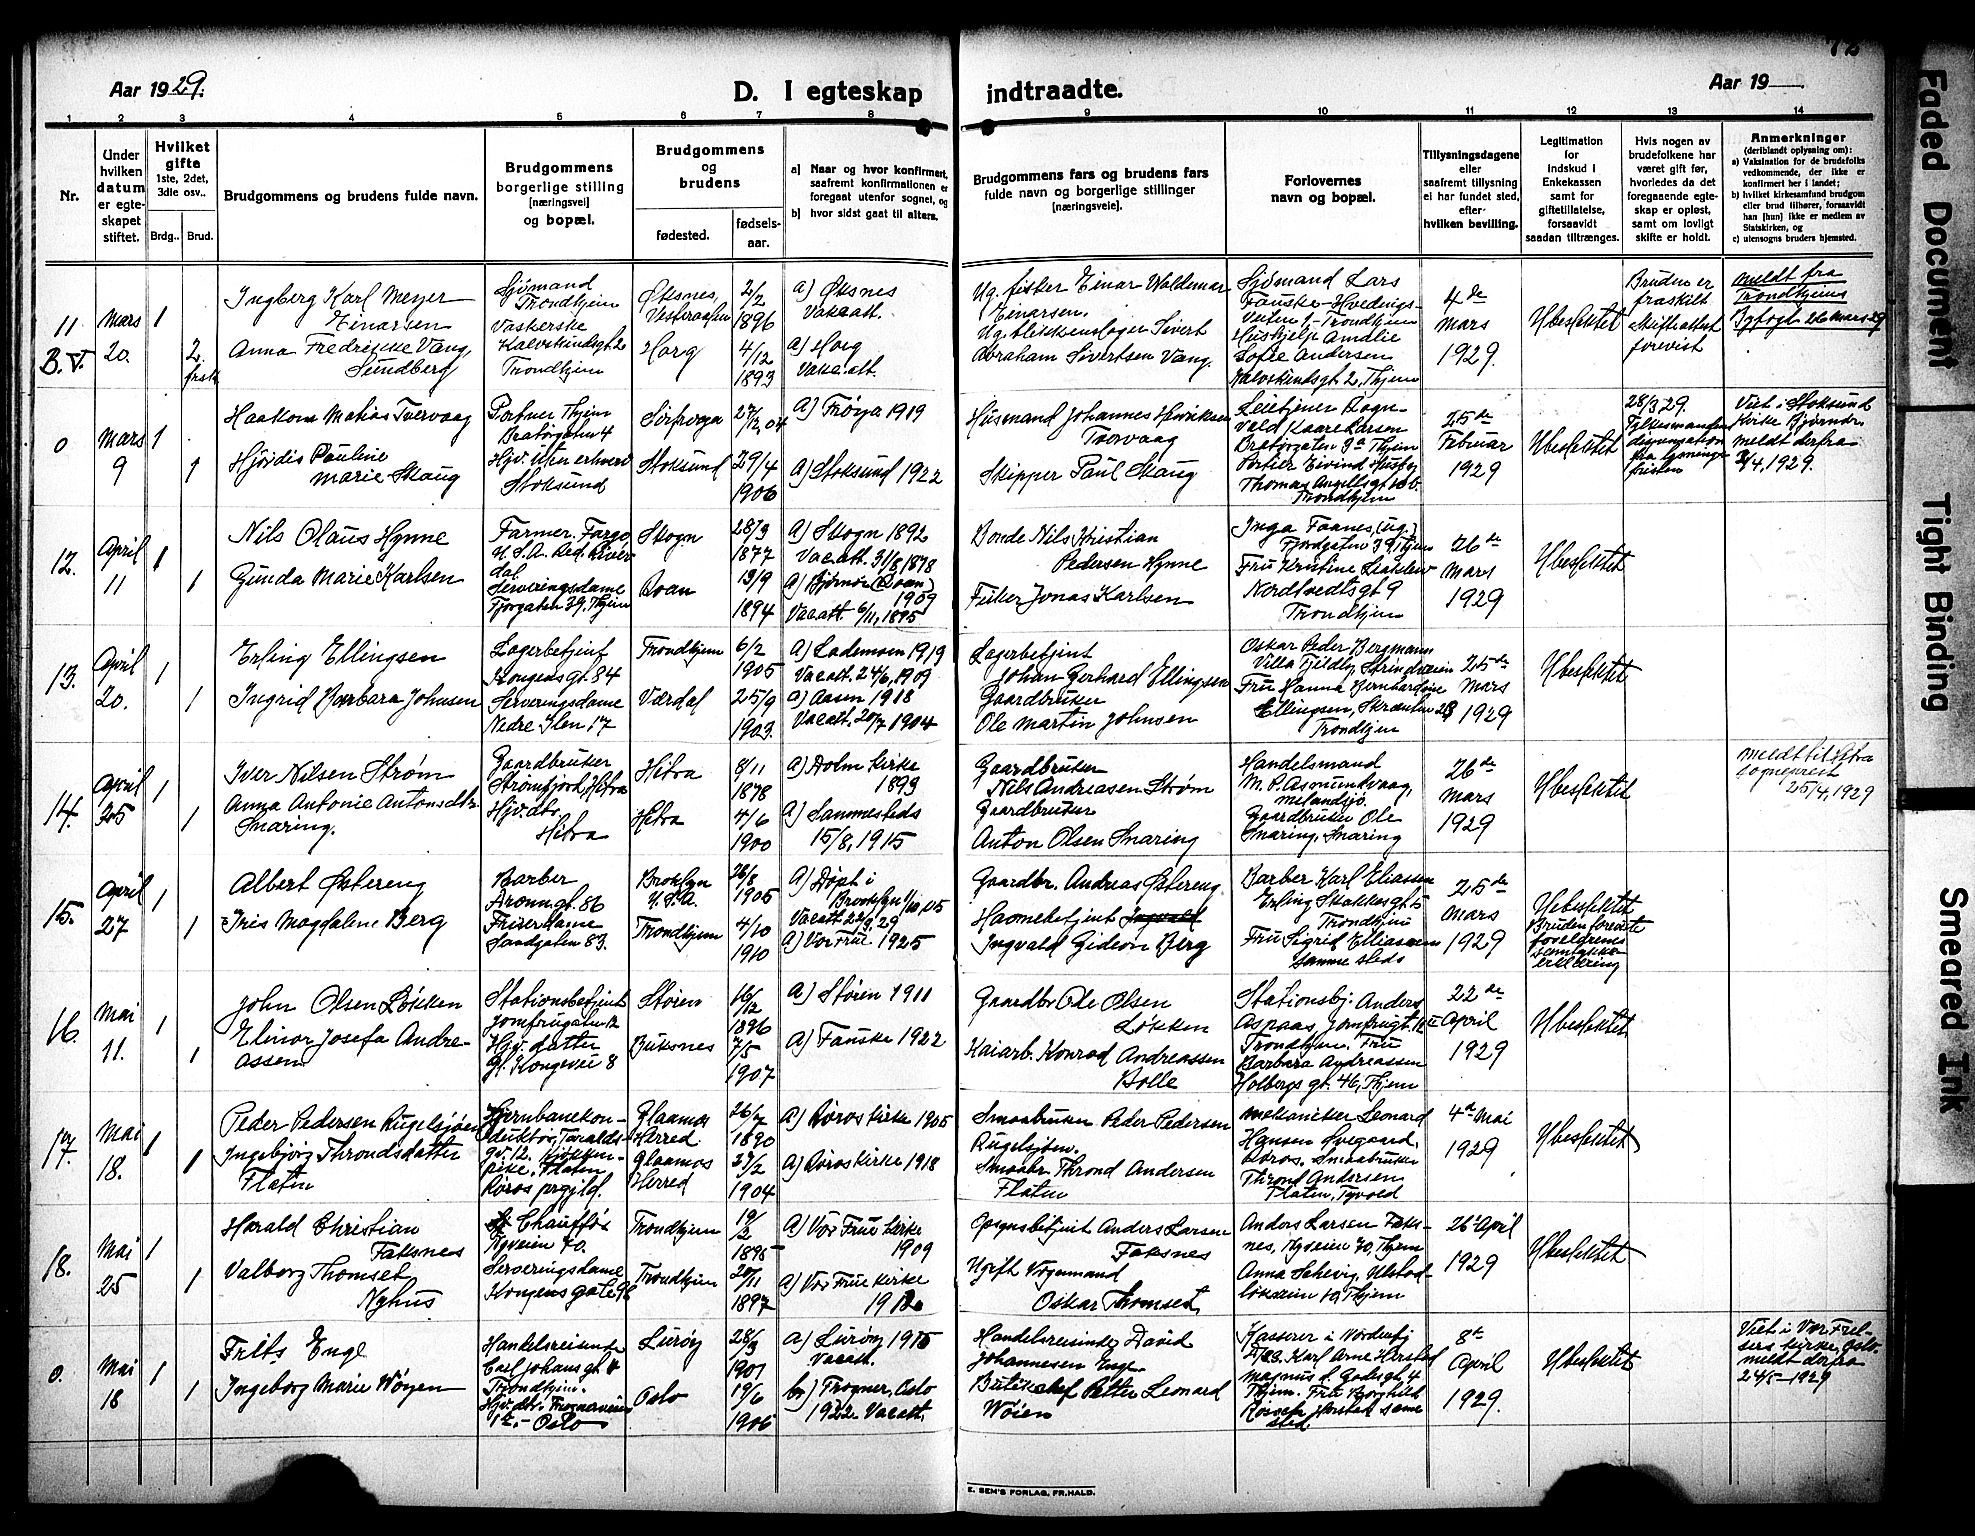 Aar 1929.
D. I egteskap
indtraadte.
Aar 19
1 2 3 4 5 6 7 8 9 10 11 12 13 14
Nr.
Under hvilken datum er egteskapet stiftet.
Hvilket gifte 1ste, 2det, 3die osv..
Brdg.. Brud.
Brudgommens og brudens fulde navn.
Brudgommens borgerlige stilling [næringsvei] og bopæl.
Brudgommens og brudens
fødested. fødselsaar.
a) Naar og hvor konfirmert, saafremt konfirmationen er foregaat utenfor sognet, og
b) hvor sidst gaat til alters.
Brudgommens fars og brudens fars fulde navn og borgerlige stillinger [næringsveie].
Forlovernes navn og bopæl.
Tillysningsdagene eller saafremt tillysning ei har fundet sted, efter hvilken bevilling.
Legitimation for indskud i Enkekassen samt for giftetillatelse, forsaavidt saadan tiltrænges.
Hvis nogen av brudefolkene har været gift før, hvorledes da det foregaaende egteskap er opløst, samt om lovligt skifte er holdt.
Anmerkninger (deriblandt oplysning om):
a) Vaksination for de brudefolks vedkommende, der ikke er konfirmert her i landet;
b) hvilket kirkesamfund brudgom eller brud tilhører, forsaavidt han [hun] ikke er medlem av Statskirken, og
c) utensogns bruders hjemsted.
11 B.V.
Mars 20.
1
2. frask
Ingberg Karl Meyer Einarsen
Anna Fredrikke Vang, Sundberg
Sjømand Trondhjem
Vaskerske Kalvskindsgt 2 Trondhjem
Øksnes, Vesteraalen
Horg
2/2 1896
4/12 1893
a) Øksnes Vakc.att.
a) Horg Vakc.att.
Ug. fisker Einar Waldemar Einarsen.
Ug. blikkenslager Sivert Abraham Sivertsen Vang.
Sjømand Lars Fauske - Hvedings-Veiten 1 - Trondhjem
Hushjelp Amalie Sofie Andersen Kalvskindsgt. 2, Thjem
4de mars 1929.
Ubesluttet
Bruden er fraskilt
Skifteattest forevist
meldt fra Trondhjems Byfogt 26 Mars 29
0
Mars 9
1
1
Haakon Matias Tvervaag
Hjördis Pauline Marie Skaug
Portner Thjem Bratørgaten 4
Hjv. uten erhverv Stoksund
Sørfrøya
Stoksund
27/12,04
29/4 1906
a) Frøya 1919
a) Stoksund 1922
Husmand Johannes Henriksen Tvervaag
Skipper Paul Skaug
Leietjener Rognvald Kaare Larsen Bratørgaten 9a Thjem
Portier Eivind Husby Thomas Angellsgt 10 b. Trondhjem
25de Februar 1929
28/3 29.
Fylkesmandens dispensation fra lysningsfristen
Viet i Stoksund Kirke Bjørnør meldt derfra 3/4.1929.
12.
April 11
1
1
Nils Olaus Hynne
Gunda Marie Karlsen
Farmer. Fargo U.S.A. Red River dal.
Serveringsdame Fjorgaten 39, Thjem
Skogn
Roan
28/3 1877
13/9 1894
a) Skogn 1892 Vac att. 31/8, 1878
a) Bjørnør (Roan) 1909 Vac att 6/11, 1895
Bonde Nils Kristian Pedersen Hynne
Fisker Jonas Karlsen
Inga Faanes, (ug.) Fjordgaten 39, Thjem
Fru Kristine Nordtvedtsgt 9 Trondhjem
26de Mars 1929
13.
April 20.
1
1
Erling Ellingsen
Ingrid Barbara Johnsen
Lagerbetjent Kongensgt. 84
Serveringsdame Nedre Ilen 17
Trondhjem
Værdal
6/2 1905
25/9 1903.
a) Lademoen 1919 Vac att. 24/6, 1909
a) Aasen 1918 Vac att. 20/7 1904
Lagerbetjent Johan Gerhard Ellingsen
Gaardbruker Ole Martin Johnsen
Oskar Peder Bergmann Villa Fjeldly, Strindveien
Fru Hanna Bernhardine Ellingsen, Skrænten 28 Trondhjem
25de Mars 1929
14.
April 25
1
1
Iver Nilsen Strøm
Anna Antonie Antonsdtr. Snaring.
Gaardbruker Strømfjord, Hitra
Hjv. dtr. Hitra
Hitra
Hitra
8/11 1878
4/6 1900
a) Dolm Kirke 1893
a) Sammesteds 15/8, 1915
Gaardbruker Nils Andreasen Strøm
Gaardbruker Anton Olsen Snaring
Handelsmand M. P. Asmundvaag, Melandsjø.
Gaardbruker Ole Snaring, Snaring
26de Mars 1929
meldt til Hitra sogneprest 25/4, 1929
15.
April 27
1
1
Albert Østereng
Iris Magdalene Berg
Barber Aronn.gt. 86
Friserdame Sandgaten 83.
Broklyn U.S.A.
Trondhjem
26/8 1905
4/10 1910
a) Døpt i Brooklyn 1/10, 05 Vac att 22/3, 29
a) Vor Frue 1925
Gaardbr. Andreas Østereng
Havnebetjent Ingvald Ingvald Gideon Berg
Barber Karl Eliassen Erling Skakkesgt. 5 Trondhjem
Fru Sigrid Elliassen samme steds
25de mars 1929
Bruden foreviste forældrenes samtykkeerklæring
16.
Mai 11.
1
1
John Olsen Løkken
Elinor Josefa Andreassen
Stationsbetjent Jomfrugaten 12
Hjv. datter Gl. Kongevei 8
Støren
Buksnes
16/2 1896
7/5 1907
a) Støren 1911
a) Fauske 1922
Gaardbr Ole Olsen Løkken
Kaiarb. Konrad Andreassen Bolle
Stationsbj. Anders Aspaas, Jomfrugt. 12 Trondhjem.
Fru Barbara Andreassen Holbergs gt. 46, Thjem
22de April 1929
17.
Mai 18.
1
1
Peder Pedersen Rugelsjøen
Ingebjørg Throndsdatter Flaten
Jernbanekonduktør,
Glaamos Herred
Glaamos Herred
26/7 1890
27/2 1904
a) Røros Kirke 1905
a) Røros Kirke 1918
Smaabruker Peder Pedersen Rugelsjøen.
Smaabr. Thrond Andersen Flaten
Mekaniker Leonard Hansen Øvegaard, Røros.
Smaabruker Thrond Andersen Flaten, Tyvold
4de Mai 1929
18.
Mai 25
1
1
Harald Christian Faksnes
Valborg Thomset Nyhus
Chauffør Nyveien 70.
Serveringsdame Kongens gate 96
Trondhjem
Trondhjem
19/2 1895
20/11 1897
a) Vor Frue Kirke 1909
a) Vor Frue Kirke 1912
Opsynsbetjent Anders Larsen Faksnes
Ugift Vognmand Oskar Thomset,
Anders Larsen Faksnes, Nyveien 70, Thjem
Anna Schevig, Ulstadløkkvein 10, Thjem
26 April 1929
0.
Mai 18
1
1
Frits Enge
Ingeborg Marie Wöyen
Handelsreisende Carl Johans gt. 4 Trondhjem.
Hjv. dtr. Frognerveien 12. - Oslo
Lurøy
Oslo
28/3 1901
19/6 1906
a) Lurøy 1915 Vac att.
b) Frogner, Oslo 1922 Vac att.
Handelsreisende David Johannesen Enge
Butikchef Petter Leonard Wöien
Kasserer i Nordenfj. Karl Arne Herstad Magnus d. Godesgt. 4 Thjem.
Fru Borghild Herstad samme sted.
8de April 1929.
Viet i Vor Frelsers Kirke, Oslo, meldt derfra 24/5 - 1929
E. SEM'S FORLAG, FR.HALD.
Faded Document
Tight Binding
Smeared Ink